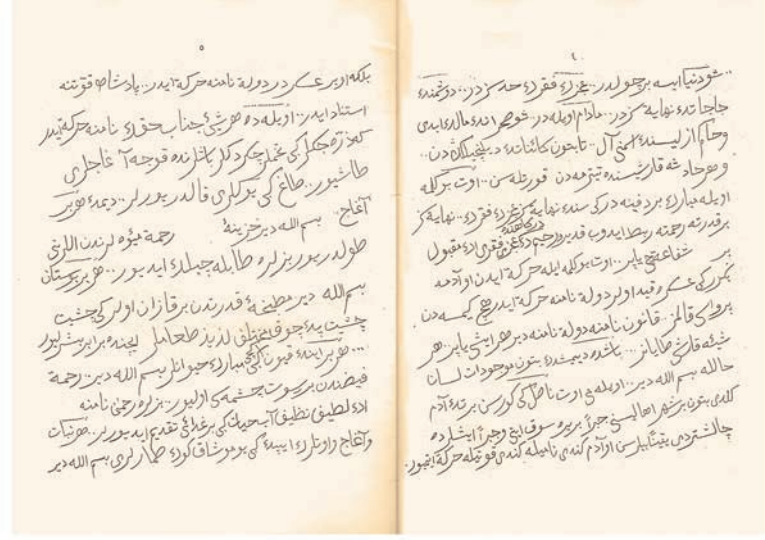 ٤
شو دنيا ايسه بر چولدر.. عجزڭ فقرڭ حدسزدر.. دشمنڭ
حاجاتڭ نهايه سزدر.. مادام اويله در.. شو صحرانڭ مالك ابدى
وحاكم ازليسنڭ اسمنى آل.. تا بتون كائناتڭ ديلنجيلكندن..
وهر حادثه قارشيسنده تيتره مه دن قورتله سن.. اوت بو كلمه
اويله مبارك بر دفينه در كى سنڭ نهايه سز عجزڭ فقرڭ.. نهايه سز
بر قدرته رحمته ربط ايدوب قدير و رحيمڭ دركاهنده عجزى فقرى اڭ مقبول
بر شفاعتجى ياپر.. اوت بو كلمه ايله حركة ايدن او آدمه
بڭزر كى عسكره قيد اولر دولة نامنه حركة ايدر هيچ كيمسه دن
پرواى قالمز.. قانون نامنه دولة نامنه دير هر ايشى ياپر.. هر
شيئه قارشى طايانر... باشده ديمشدڭ بتون موجودات لسان
حالله بسم الله دير.. اويله مى اوت ناصل كى كورسن بر تك آدم
كلدى بتون بر شهر اهاليسنى جبراً بر يره سوق ايتدى وجبراً ايشلرده
چالشتردى يقيناً بيلرسن او آدم كندى ناميله كندى قوتيله حركة ايتميور.
٥
بلكه او بر عسكردر دولة نامنه حركة ايدر.. پادشاه قوتنه
استناد ايدر.. اويله ده هر شئ جناب حقڭ نامنه حركة ايدر
كه ذره جكلر كى تخملر چكردكلر باشلرنده قوجه آغاجلرى
طاشيور.. طاغ كى يوكلرى قالديريورلر.. ديمك هر بر
آغاج.. بسم الله دير خزينهٔ رحمة ميوه لرندن اللرينى
طولدريور بزلره طابله جيلك ايديور.. هر بر بوستان
بسم الله دير مطبخهٔ قدرتدن بر قازان اولر كى چشيت
چشيت پك چوق مختلف لذيذ طعاملر ايچنده برابر پشريلور
... هر بر اينك قيون كچى كبى مبارك حيوانلر بسم الله دير.. رحمة
فيضندن بر سوت چشمه سى اوليور.. بزلره رحمن نامنه
اڭ لطيف نظيف آب حيات كبى بر غدائى تقديم ايديورلر.. هر نبات
و آغاج و اوتلرڭ ايپك كى يوموشاق كوك طمارلرى بسم الله دير